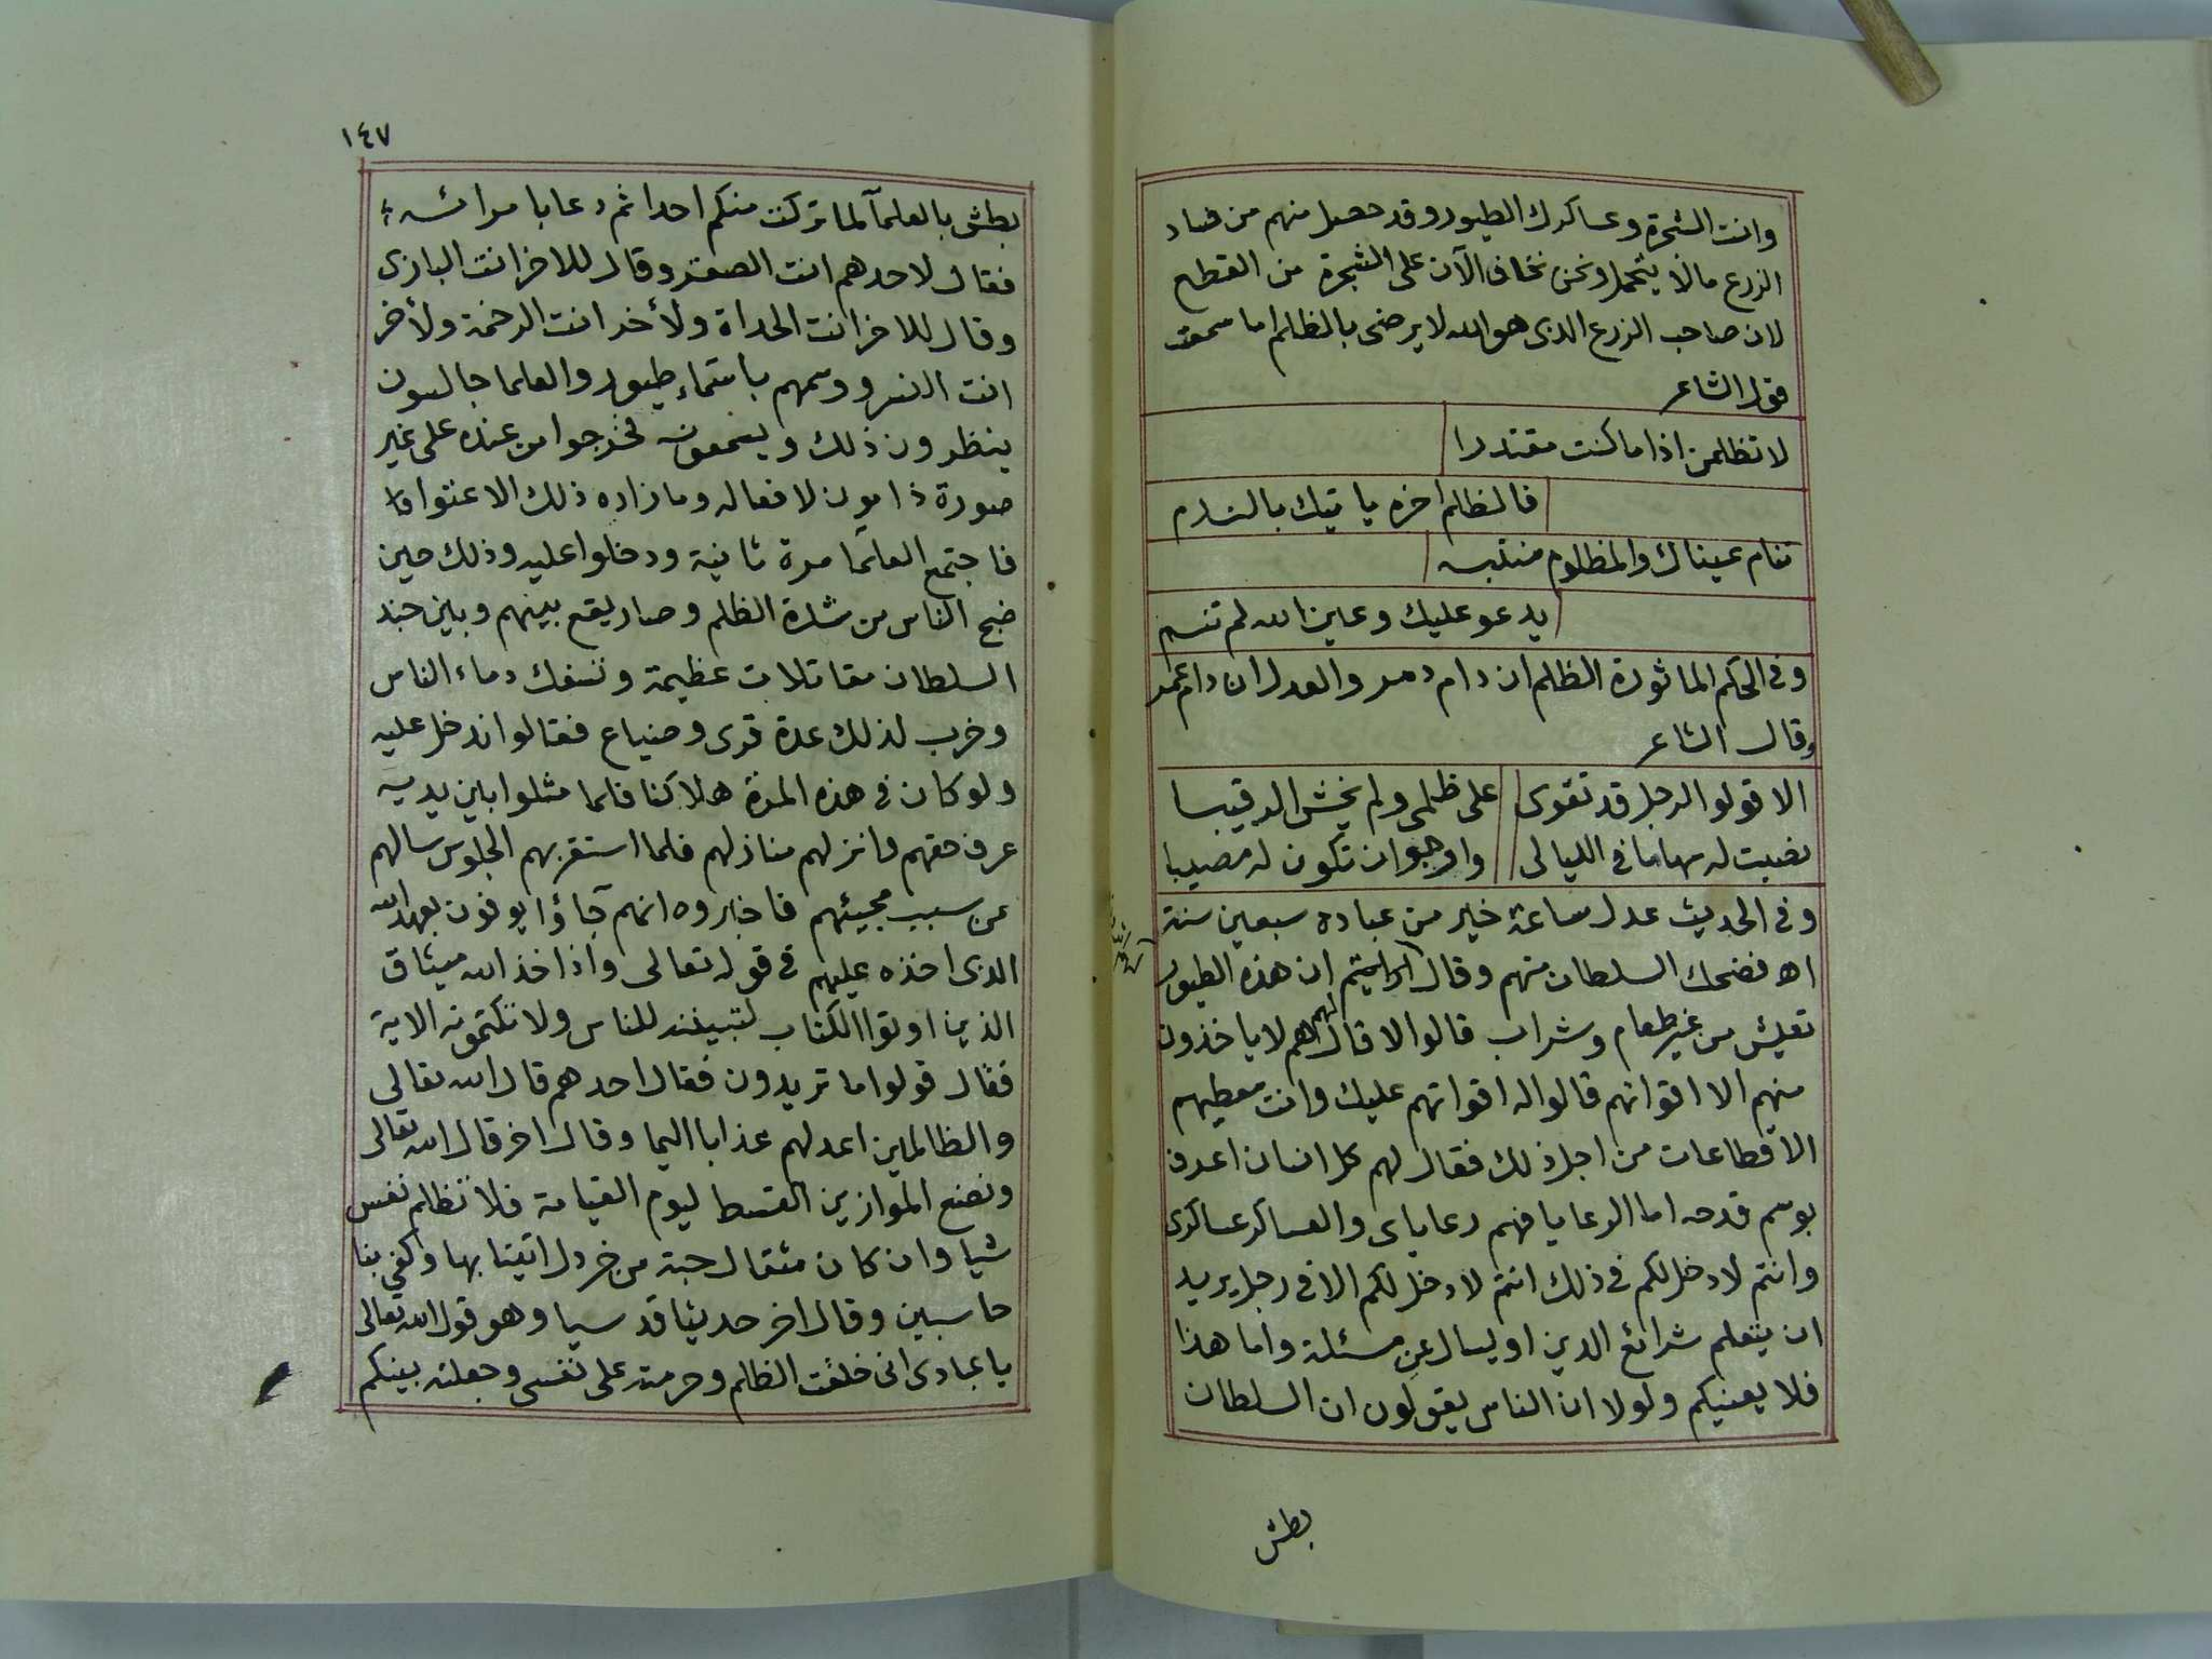 وانت الشجرة وعساكرك الطيور وقد حصل منهم من فساد
الزرع مالا يتحمل ونحن نخاف الآن على الشجرة من القطع
لان صاحب الزرع الذى هو الله لا يرضى بالظلم اما سمعت
قول الشاعر
لا تظلمن اذا ما كنت مقتدرا
فالظلم اخره ياتيك بالندم
تنام عيناك والمظلوم منتبه
يدعو عليك وعين الله لم تنم
وفى الحكم الماثورة الظلم ان دام دمر والعدل ان دام عمر
وقال الشاعر
الا قولوا لرجل قد تقوى على ظلمى ولم يخش الرقيبا
نصبت له سهاما فى الليالى وارجو ان تكون له مصيبا
وفى الحديث عدل ساعة خير من عبادة سبعين سنة
اه فضحك السلطان منهم وقال ارايتم ان هذه الطيور
تعيش من غير طعام وشراب قالوا لا قال لهم هم لا ياخذون
منهم الا اقواتهم قالوا له اقواتهم عليك وانت معطيهم
الاقطاعات من اجل ذلك فقال لهم كل انسان اعرف
بوسم قدحه اما الرعايا فهم رعاياى والعساكر عساكرى
وانتم لا دخل لكم فى ذلك انتم لا دخل لكم الا فى رجل يريد
ان يتعلم شرائع الدين او يسال عن مسئلة واما هذا
فلا يعنيكم ولولا ان الناس يقولون ان السلطان
بطش
١٤٧
بطش بالعلمآ لما تركت منكم احدا ثم دعا بامرائه
فقال لاحدهم انت الصقر وقال للاخر انت البازى
وقال للاخر انت الحداة ولأخر انت الرخمة ولأخر
انت النسر ووسمهم باسماء طيور والعلما جالسون
ينظرون ذلك ويسمعونه فخرجوا من عنده على غير
صورة ذامون لافعاله وما زاده ذلك الا عتوا
فاجتمع العلمآ مرة ثانية ودخلوا عليه وذلك حين
ضج الناس من شدة الظلم وصار يقع بينهم وبين جند
السلطان مقاتلات عظيمة وتسفك دماء الناس
وخرب لذلك عدة قرى وضياع فقالوا ندخل عليه
ولو كان فى هذه المرة هلاكنا فلما مثلوا بين يديه
عرف حقهم فانزلهم منازلهم فلما استقر بهم الجلوس سالهم
عن سبب مجيئهم فاخبروه انهم جآؤا يوفون بعهد الله
الذى اخذه عليهم فى قوله تعالى واذ اخذ الله ميثاق
الذين اوتوا الكتاب لتبيننه للناس ولا تكتمونه الاية
فقال قولوا ما تريدون فقال احدهم قال الله تعالى
والظالمين اعد لهم عذابا اليما وقال اخر قال الله تعالى
ونضع الموازين القسط ليوم القيامة فلا تظلم نفس
شيا وان كان مثقال حبة من خردل اتينا بها وكفى بنا
حاسبين وقال اخر حديثا قدسيا وهو قول الله تعالى
يا عبادى انى خلقت الظلم وحرمته على نفسى وجعلته بينكم